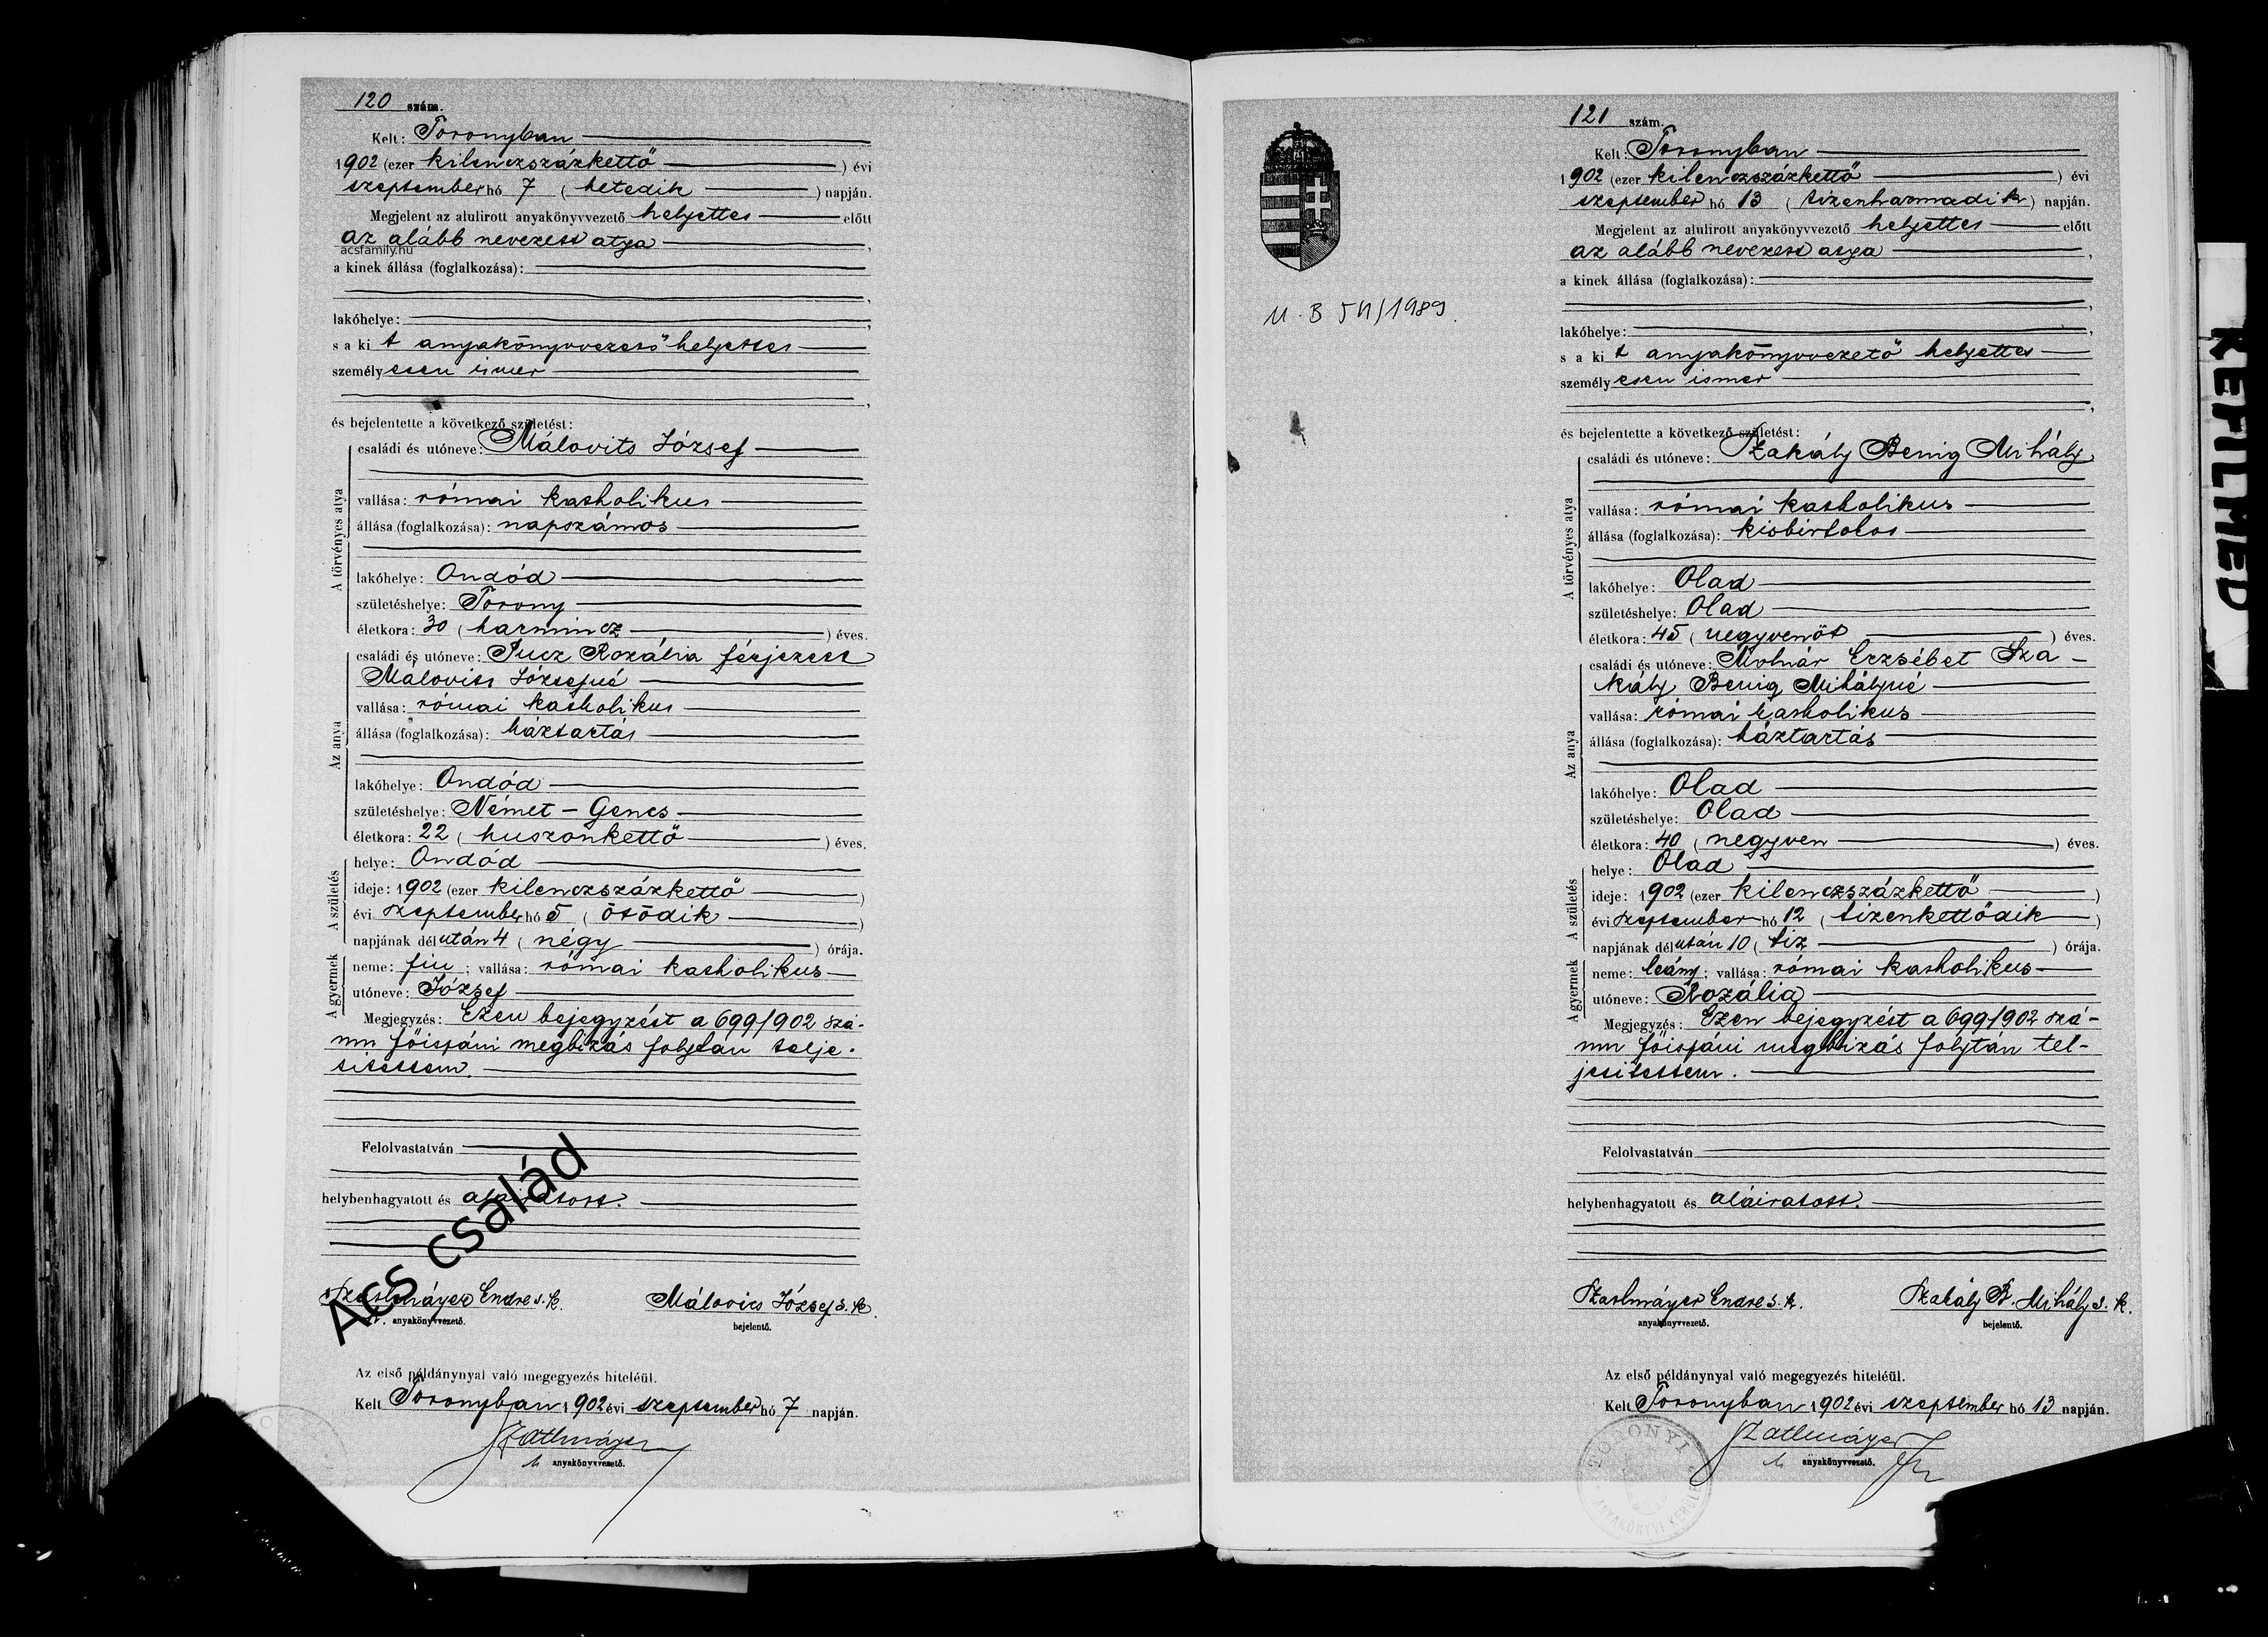 120 szám.
Kelt: Toronyban
1902 (ezer kilenczszázkettő) évi
szeptember hó 7 (hetedik) napján.
Megjelent az alulirott anyakönyvvezető helyettes előtt
az alább nevezett atya,
acsfamily.hu
a kinek állása (foglalkozása):
lakóhelye:
s a kit anyakönyvvezető helyettes
személyesen ismer
és bejelentette a következő születést:
A törvényes atya
családi és utóneve: Málovits József
vallása: római katholikus
állása (foglalkozása): napszámos
lakóhelye: Ondód
születéshelye: Torony
életkora: 30 (harmincz) éves.
Az anya
családi és utóneve: Pucz Rozália férjezett
Málovits Józsefné
vallása: római katholikus
állása (foglalkozása): háztartás
lakóhelye: Ondód
születéshelye: Német-Gencs
életkora: 22 (huszonkettő) éves.
A születés
helye: Ondód
ideje: 1902 (ezer kilenczszázkettő)
évi szeptember hó 5 (ötödik)
napjának délután 4 (négy) órája.
A gyermek
neme: fiu; vallása: római katholikus
utóneve: József
Megjegyzés: Ezen bejegyzést a 699/902 szá-
mu főispáni megbizás folytán telje-
sitettem.
Felolvastatván
helybenhagyatott és aláiratott.
Ács család
Szatlmáyer Endre s. k.
h. anyakönyvvezető.
Málovics József s. k.
bejelentő.
Az első példánynyal való megegyezés hiteléül.
Kelt Toronyban 1902 évi szeptember hó 7 napján.
Szatlmáyer
h anyakönyvvezető.
M. B 54/1989.
121 szám.
Kelt: Toronyban
1902 (ezer kilenczszázkettő) évi
szeptember hó 13 (tizenharmadik) napján.
Megjelent az alulirott anyakönyvvezető helyettes előtt
az alább nevezett atya,
a kinek állása (foglalkozása):
lakóhelye:
s a kit anyakönyvvezető helyettes
személyesen ismer
és bejelentette a következő születést:
A törvényes atya
családi és utóneve: Szakály Benig Mihály
vallása: római katholikus
állása (foglalkozása): kisbirtokos
lakóhelye: Olad
születéshelye: Olad
életkora: 45 (negyvenöt) éves.
Az anya
családi és utóneve: Molnár Erzsébet Sza-
kály Benig Mihályné
vallása: római katholikus
állása (foglalkozása): háztartás
lakóhelye: Olad
születéshelye: Olad
életkora: 40 (negyven) éves.
A születés
helye: Olad
ideje: 1902 (ezer kilenczszázkettő)
évi szeptember hó 12 (tizenkettődik)
napjának délután 10 (tiz) órája.
A gyermek
neme: leány; vallása: római katholikus
utóneve: Rozália
Megjegyzés: Ezen bejegyzést a 699/902 szá-
mu főispáni megbizás folytán tel-
jesitettem.
Felolvastatván
helybenhagyatott és aláiratott.
Szatlmáyer Endre s. k.
anyakönyvvezető.
Szakály B. Mihály s. k.
bejelentő.
Az első példánynyal való megegyezés hiteléül.
Kelt Toronyban 1902 évi szeptember hó 13 napján.
Szatlmáyer
h anyakönyvvezető.
TORONYI
ANYAKÖNYVI KERÜLET
KEPILMED